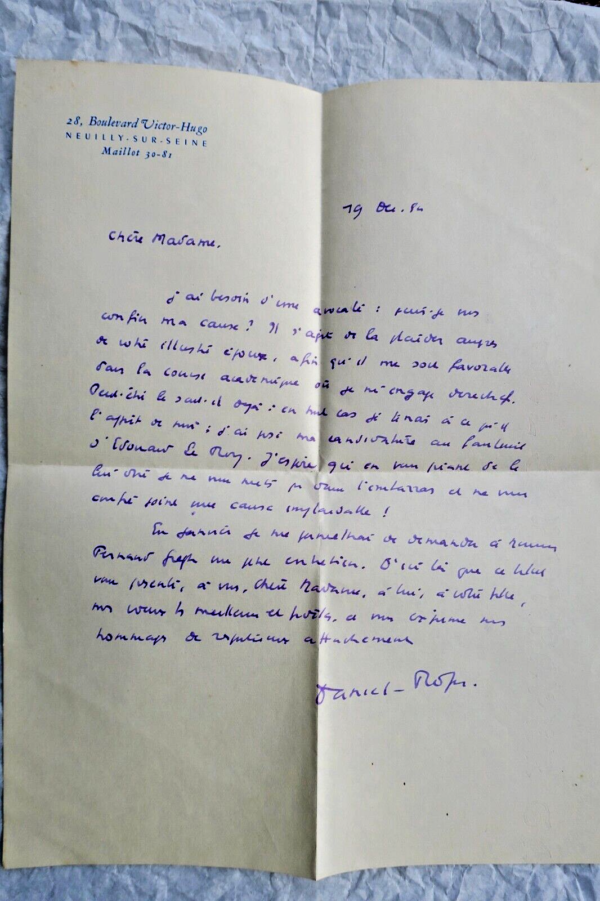 28, Boulevard Victor-Hugo
NEUILLY-SUR-SEINE
Maillot 30-81
19 Dec. 54
Chère Madame,
J'ai besoin d'une avocate : puis-je vous
confier ma cause ? Il s'agit de la plaider auprès
de votre illustre époux, afin qu'il me soit favorable
dans la course académique où je m'engage derechef.
Peut-être le sait-il déjà : en tout cas je tenais à ce qu'il
l'apprît de moi ; j'ai posé ma candidature au fauteuil
d'Edouard Le Roy. J'espère qu'en vous priant de le
lui dire je ne vous mets pas dans l'embarras et ne vous
confie point une cause implaidable !
En janvier je me permettrai de demander à
Fernand Gregh un entretien. D'ici là que
vous, Chère Madame, à lui, à votre
vœux les meilleurs et vous exprime mes
hommages de respectueux attachement
Daniel-Rops.